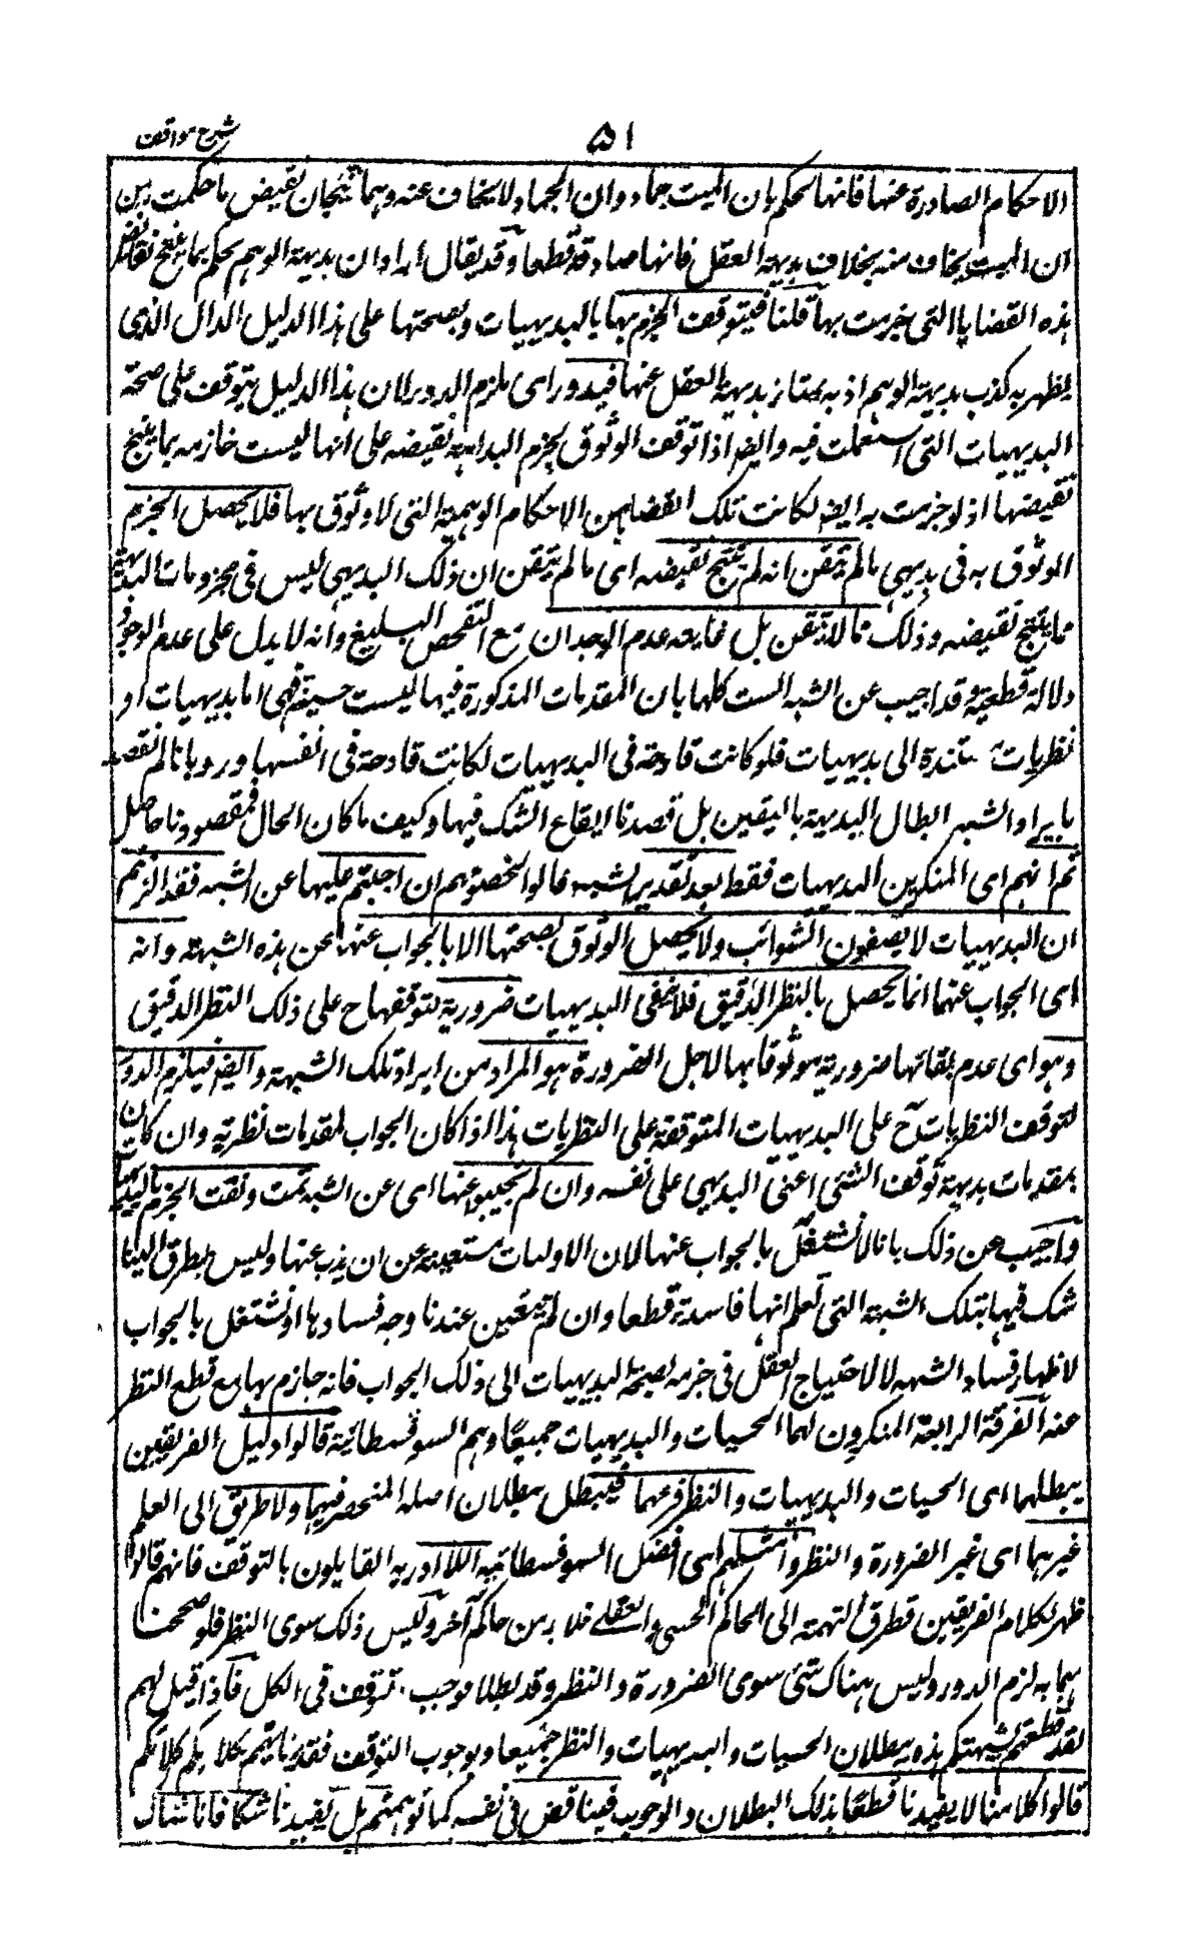 شرح مواقف
۵۱
الاحكام الصادرة عنها فانها تحكم بان الميت جماد وان الجماد لا يخاف عنه وهما ينتجان نقيض ما حكمت به من
ان الميت يخاف منه بخلاف بديهة العقل فانها صادقة قطعا وقد يقال اراد ان بديهة الوهم تحكم بما ينتج نقائض
هذه القضايا التى جزمت بها قلنا فيتوقف الجزم بها بالبديهيات وبصحتها على هذا الدليل الدال الذى
يظهر به كذب بديهة الوهم اذ به يمتاز بديهة العقل عنها فيدور اى يلزم الدور لان هذا الدليل يتوقف على صحة
البديهيات التى استعملت فيه وايضا اذا توقف الوثوق بجزم البداهة نقيضه على انها ليست جازمة بما ينتج
نقيضها اذ لو جزمت به ايضا لكانت تلك القضايا من الاحكام الوهمية التى لا وثوق بها فلا يحصل الجزم
الموثوق به فى بديهى ما لم يتيقن انه لم ينتج نقيضه اى ما لم يتيقن ان ذلك البديهى ليس فى مجزومات البديهة
ما ينتج نقيضه وذلك مما لا يتيقن بل غايته عدم الوجدان مع التفحص البليغ وانه لا يدل على عدم الوجود
دلالة قطعية وقد اجيب عن الشبه الست كلها بان المقدمات المذكورة فيها ليست حسية فهى اما بديهيات او
نظريات مستندة الى بديهيات فلو كانت قادحة فى البديهيات لكانت قادحة فى انفسها ورد بانا لم نقصد
بايراد الشبه ابطال البديهية باليقين بل قصدنا ايقاع الشك فيها وكيف ما كان الحال فمقصودنا حاصل
ثم انهم اى المنكرين البديهيات فقط بعد تقدير الشبه قالوا لخصومهم ان اجبتم عليها عن الشبه فقد التزمتم
ان البديهيات لا يصفون الشوائب ولا يحصل الوثوق بصحتها الا بالجواب عنها عن هذه الشبهة وانه
اى الجواب عنها انما يحصل بالنظر الدقيق فلا تبقى البديهيات ضرورية لتوقفها ح على ذلك النظر الدقيق
وهو اى عدم بقائها ضرورية موثوقا بها لاجل الضرورة هو المراد من ايراد تلك الشبهة وايضا فيلزم الدور
لتوقف النظريات ح على البديهيات المتوقفة على النظريات هذا اذا كان الجواب لمقدمات نظرية وان كان
بمقدمات بديهية توقف الشئ اعنى البديهى على نفسه وان لم تجيبوا عنها اى عن الشبه تمت ونفت الجزم بالبديهيات
واجيب عن ذلك بانا لا نشتغل بالجواب عنها لان الاوليات مستغنية عن ان يذب عنها وليس يتطرق الينا
شك فيها بتلك الشبهة التى نعلم انها فاسدة قطعا وان لم يتعين عندنا وجه فسادها او نشتغل بالجواب
لاظهار فساد الشبه لا لاحتياج العقل فى جزمه بصحة البديهيات الى ذلك الجواب فانه جازم بها مع قطع النظر
عنه الفرقة الرابعة المنكرون لهما الحسيات والبديهيات جميعا وهم السوفسطائية قالوا دليل الفريقين
يبطلهما اى الحسيات والبديهيات والنظر فرعهما فيبطل ببطلان اصله المنحصر فيهما ولا طريق الى العلم
غيرهما اى غير الضرورة والنظر وامثلهم اى افضل السوفسطائية اللاادرية القايلون بالتوقف فانهم قالوا
ظهر بكلام الفريقين تطرق التهمة الى الحاكم الحسى والعقلى فلا بد من حاكم آخر وليس ذلك سوى النظر فلو صححنا
هما به لزم الدور وليس هناك شئ سوى الضرورة والنظر وقد بطلا فوجب توقف فى الكل فاذا قيل لهم
لقد قطعتم بشبهتكم هذه ببطلان الحسيات والبديهيات والنظر جميعا وبوجوب التوقف فقد ناقضتم بكلامكم كلامكم
قالوا كلامنا لا يفيدنا قطعا بذلك البطلان والوجوب فيناقض فى نفسه كما توهمتم بل يفيدنا شكا فانا شاك